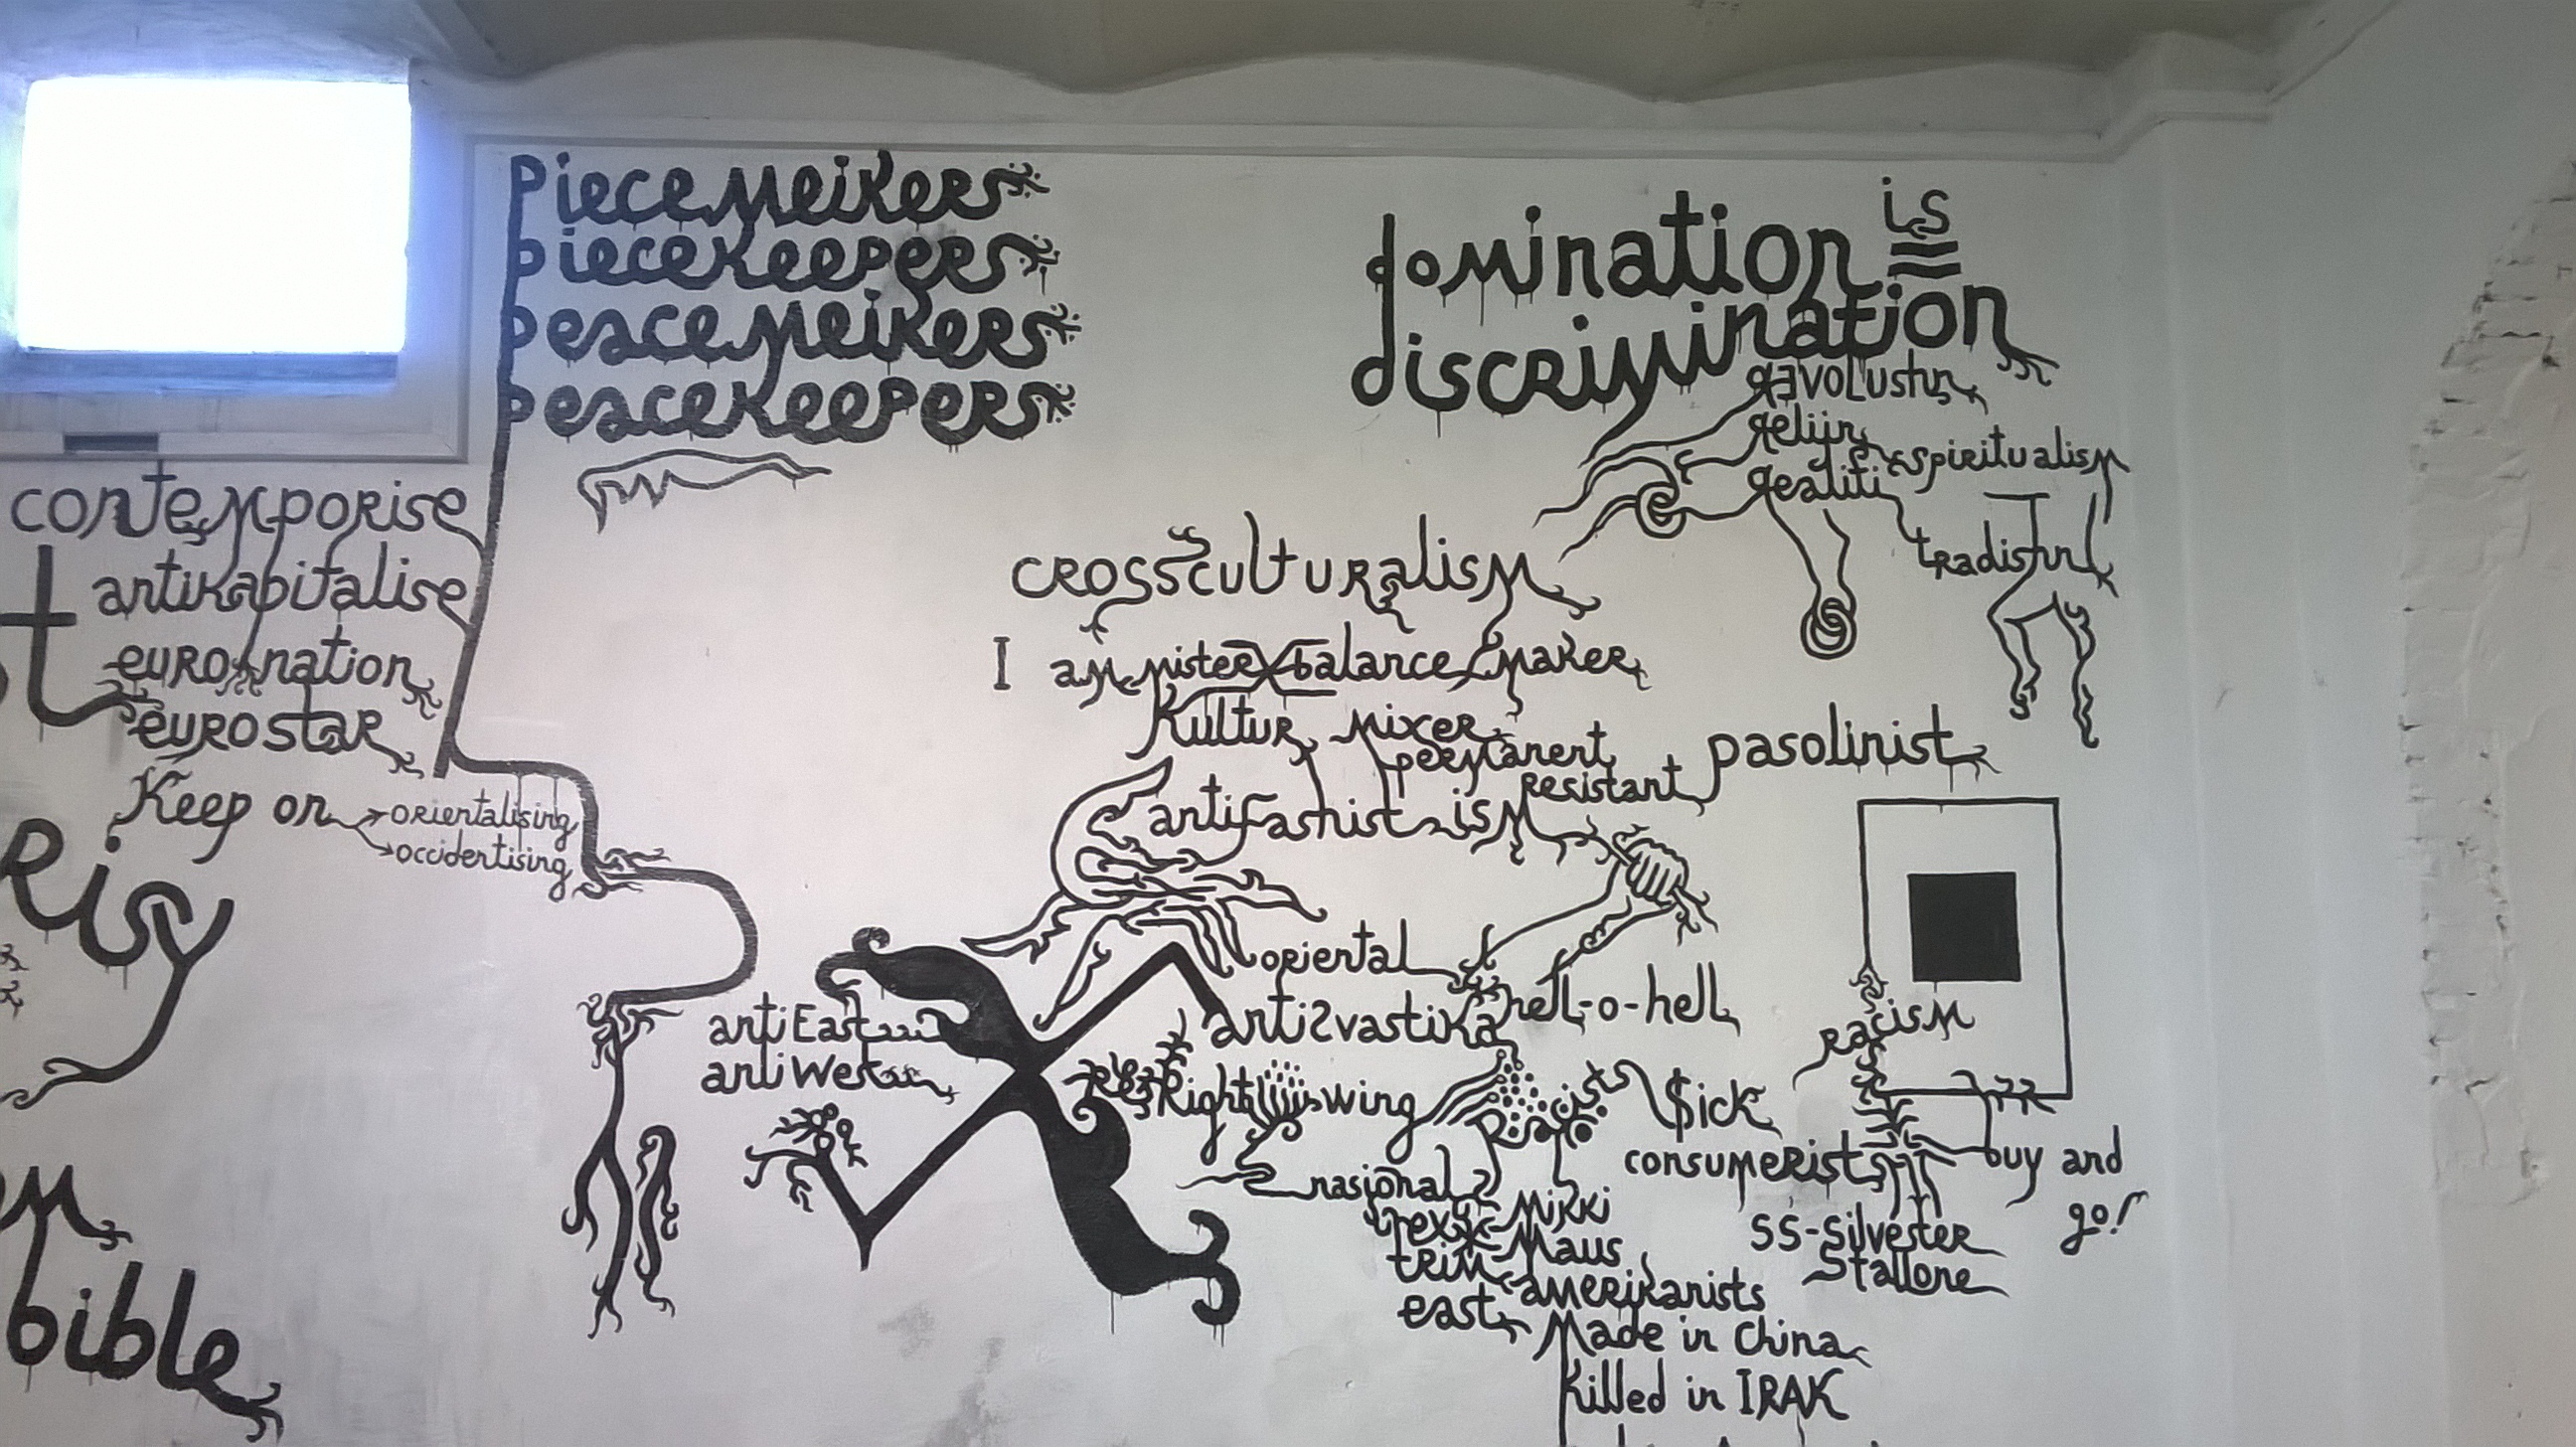 Piecemeikers
piecekeepers
peacemeikers
peacekeepers
contemporise
antikapitalise
euro nation
eurostar
Keep on
orientalising
occidentising
t
Risy
M
bible
is
domination =
discrimination
revolushn
relijn
realiti
spiritualism
tradishn
crossculturalism
I am mister balance maker
Kultur mixer
permanent
resistant
pasolinist
antifashist-ism
oriental
antiSvastika
hell-o-hell
antiEast
antiWest
Right wing
Racists
$ick
racism
consumerists
buy and
go!
nasional
Mikki
Maus
trim
east
amerikanists
SS-Silvester
Stallone
Made in China
Killed in IRAK